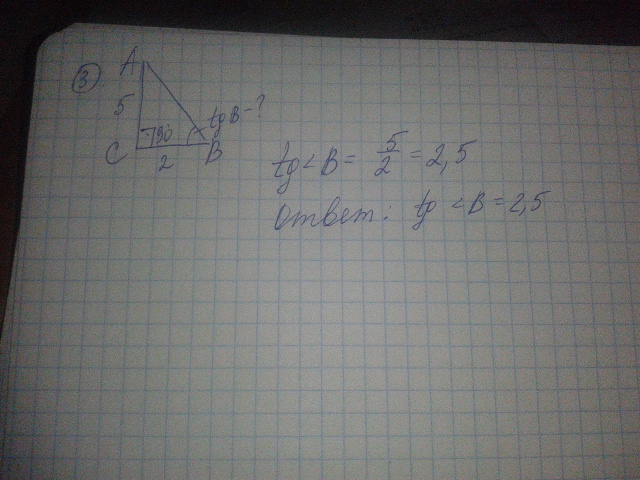 3
A
5
90
tg B - ?
C
2
B
tg < B = 5/2 = 2,5
Ответ: tg < B = 2,5